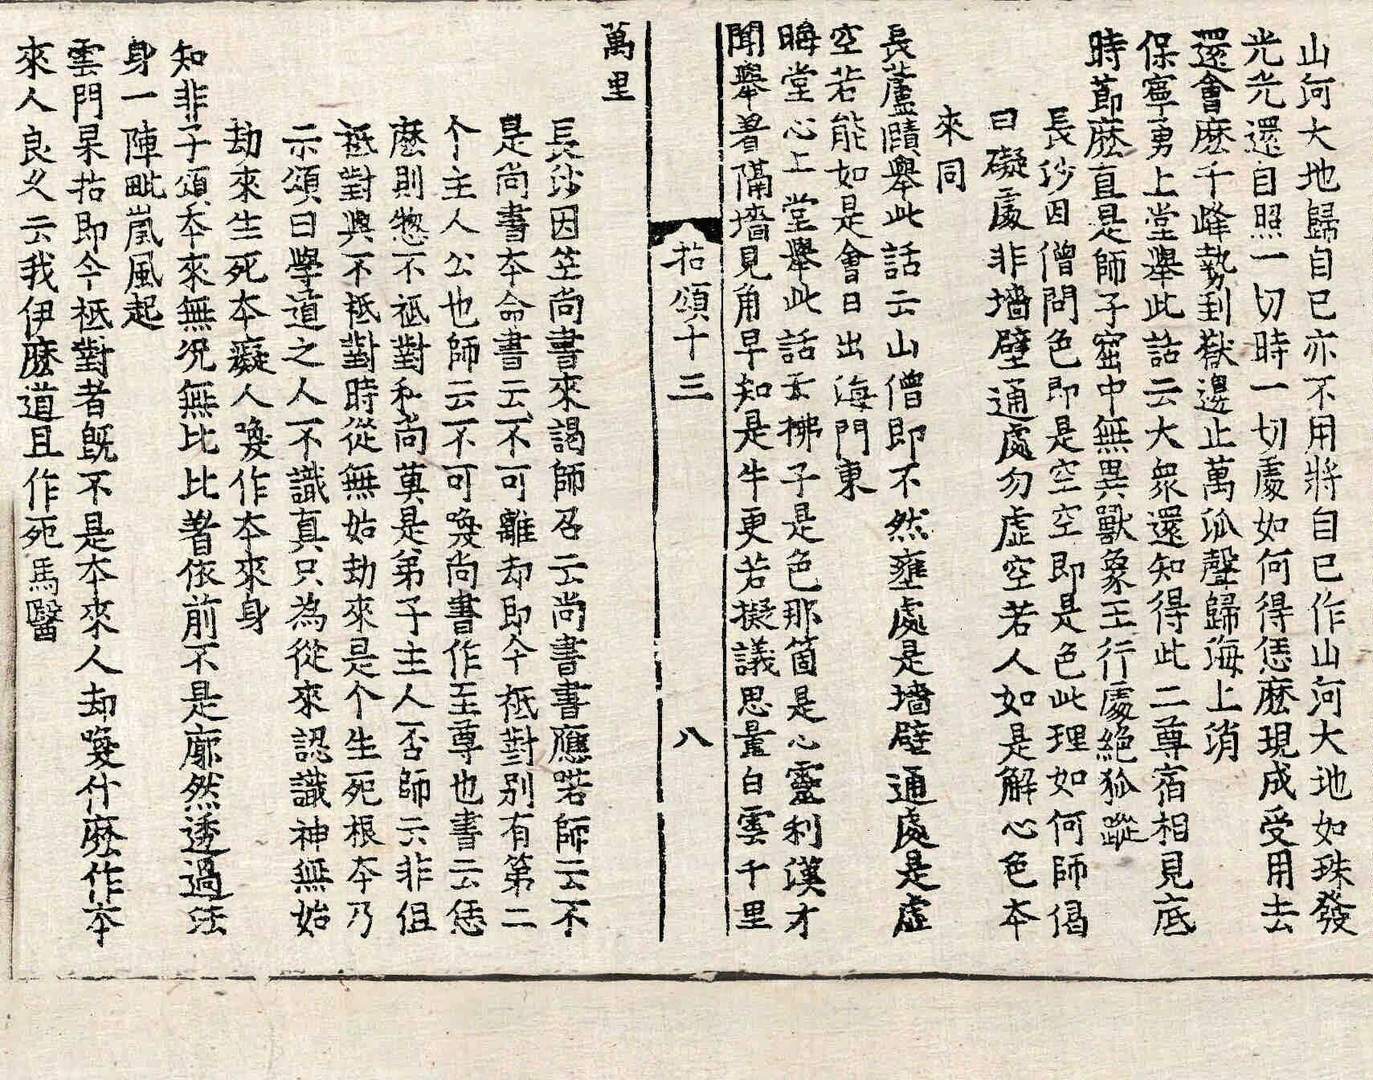 山河大地歸自己亦不用將自己作山河大地如珠發
光光還自照一切時一切處如何得恁麽現成受用去
還會麽千峰勢到嶽邊止萬泒聲歸海上消
保寧勇上堂舉此話云大衆還知得此二尊宿相見底
時節麽直是師子窟中無異獸象王行處絶狐蹤
長沙因僧問色即是空空即是色此理如何師偈
曰礙處非墻壁通處勿虛空若人如是解心色本
來同
長蘆賾舉此話云山僧即不然壅處是墻壁通處是虛
空若能如是會日出海門東
晦堂心上堂舉此話云拂子是色那箇是心靈利漢才
聞舉着隔墻見角早知是牛更若擬議思量白雲千里
拈頌十三
八
萬里
長沙因竺尚書來謁師召云尚書書應喏師云不
是尚書本命書云不可離却即今祗對別有第二
个主人公也師云不可喚尚書作至尊也書云恁
麽則惣不祗對和尚莫是弟子主人否師云非但
祗對與不祗對時從無始劫來是个生死根本乃
示頌曰學道之人不識真只為從來認識神無始
劫來生死本癡人喚作本來身
知非子頌本來無況無比比着依前不是廓然透過法
身一陣毗嵐風起
雲門杲拈即今祗對者旣不是本來人却喚什麽作本
來人良久云我伊麽道且作死馬醫